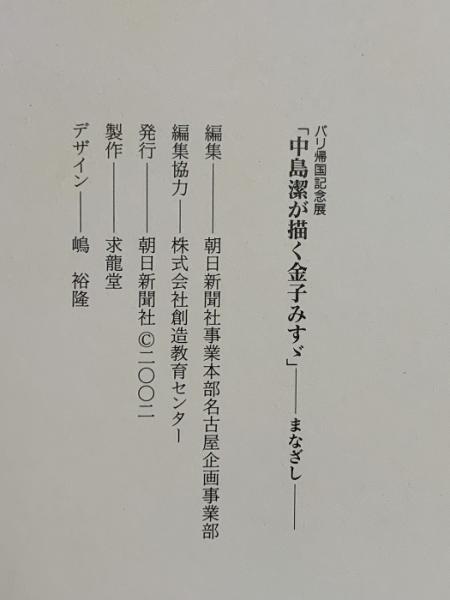 パリ帰国記念展
「中島潔が描く金子みすゞ」——まなざし——
編集——朝日新聞社事業本部名古屋企画事業部
編集協力——株式会社創造教育センター
発行——朝日新聞社©二〇〇二
製作——求龍堂
デザイン——嶋　裕隆